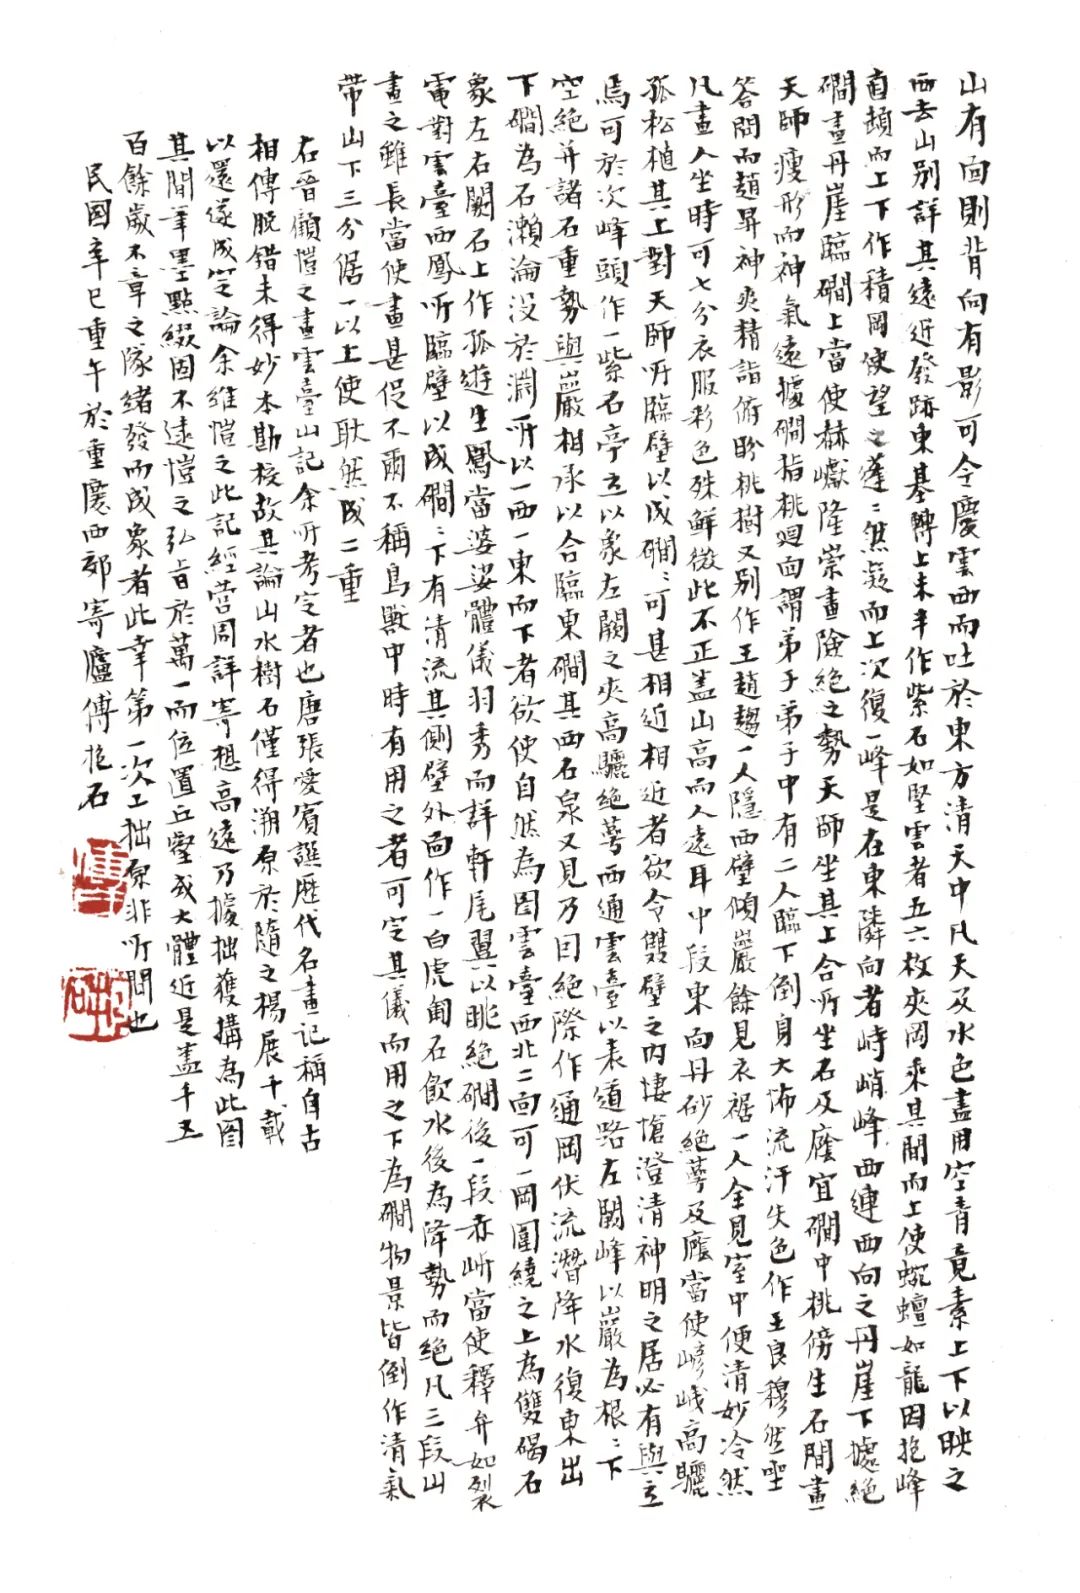 山有面則背向有影可令慶雲西而吐於東方清天中凡天及水色盡用空青竟素上下以映之
西去山別詳其遠近發跡東基轉上未半作紫石如堅雲者五六枚夾岡乘其間而上使蜿蟺如龍因抱峰
直頓而上下作積岡使望之蓬〻然凝而上次復一峰是石東隣向者峙峭峰西連西向之丹崖下據絕
磵畫丹崖臨磵上當使赫巘隆崇畫險絕之勢天師坐其上合所坐石及廕宜磵中桃傍生石間畫
天師瘦形而神氣遠據磵指桃迴面謂弟子弟子中有二人臨下倒身大怖流汗失色作王良穆然坐
答問而趙昇神爽精詣俯盻桃樹又別作王趙趨一人隱西壁傾巖餘見衣裾一人全見室中使清妙冷然
凡畫人坐時可七分衣服彩色殊鮮微此不正蓋山高而人遠耳中段東面丹砂絕蕚及廕當使嵃嶬高驪
孤松植其上對天師所臨壁以成磵〻可甚相近相近者欲令雙壁之內悽愴澄清神明之居必有與立
焉可於次峰頭作一紫石亭立以象左闕之夾高驪絕蕚西通雲臺以表道路左闕峰以巖為根〻下
空絕并諸石重勢與巖相承以合臨東磵其西石泉又見乃因絕際作通岡伏流潛降水復東出
下磵為石瀨淪沒於淵所以一西一東而下者欲使自然為圖雲臺西北二面可一岡圍繞之上為雙碣石
象左右闕石上作孤遊生鳳當婆娑體儀羽秀而詳軒尾翼以眺絕磵後一段赤岓當使釋弁如裂
電對雲臺西鳳所臨壁以成磵〻下有清流其側壁外面作一白虎匍石飲水後為降勢而絕凡三段山
畫之雖長當使畫甚促不爾不稱鳥獸中時有用之者可定其儀而用之下為磵物景皆倒作清氣
帶山下三分倨一以上使耿然成二重
右晉顧愷之畫雲臺山記余所考定者也唐張愛賓譔歷代名畫記稱自古
相傳脫錯未得妙本勘校故其論山水樹石僅得溯原於隨之楊展千載
以還遂成定論余維愷之此記經營周詳寄想高遠乃據拙獲搆為此圖
其間筆墨點綴因不逮愷之弘旨於萬一而位置丘壑或大體近是蓋千五
百餘歲不章之隊緒發而成象者此幸第一次工拙原非所問也
民國辛巳重午於重慶西郊寄廬傅抱石